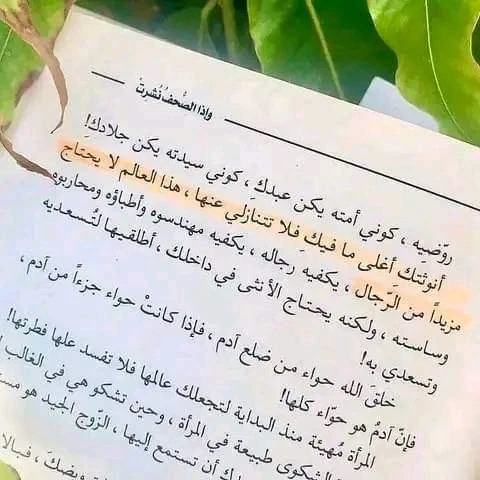 وإذا الصُّحفُ نُشرت
روّضِيه ، كوني أمته يكن عبدكِ ، كوني سيدته يكن جلادكِ!
أنوثتكِ أغلى ما فيكِ فلا تتنازلي عنها ، هذا العالم لا يحتاج
مزيداً من الرّجال ، يكفيه رجاله ، يكفيه مهندسوه وأطباؤه ومحاربوه
وساسته ، ولكنه يحتاج الأنثى في داخلك ، أطلقيها لتُسعديه
وتسعدي به!
خلقَ الله حواء من ضلع آدم ، فإذا كانتْ حواء جزءاً من آدم ،
فإنّ آدمُ هو حوّاء كلها!
المرأة مُهيئة منذ البداية لتجعلك عالمها فلا تفسد علها فطرتها!
الشكوى طبيعة في المرأة ، وحين تشكو هي في الغالب
أن تستمع إليها ، الزّوج الجيد هو